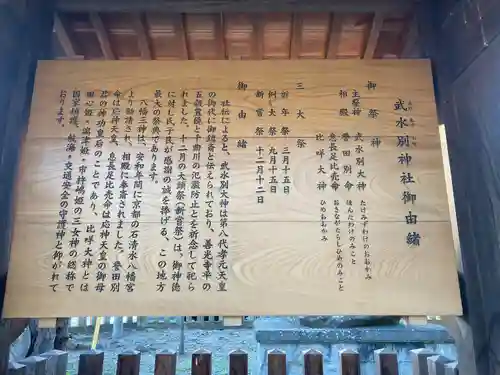 武水別神社御由緒
御祭神
主祭神 武水別大神 たけみずわけのおおかみ
相殿 誉田別命 ほんだわけのみこと
息長足比売命 おきながたらしひめのみこと
比咩大神 ひめおおかみ
三大祭
祈年祭 三月十五日
例大祭 九月十五日
新嘗祭 十二月十二日
御由緒
社伝によると、武水別大神は第八代孝元天皇
の御代に御鎮斎と伝えられており、善光寺平の
五穀豊穣と千曲川の氾濫防止とを祈念して祀ら
れました。十二月の大頭祭(新嘗祭)は、御神徳
に対し氏子民が感謝の誠を捧げる、この地方
最大の祭典であります。
八幡三神は、安和年間に京都の石清水八幡宮
より勧請され、相殿に奉斎されました。誉田別
命は応神天皇、息長足比売命は応神天皇の御母
君の神功皇后のことであり、比咩大神とは
田心姫・湍津姫・市杵嶋姫の三女神の総称で
国家裨護、航海・交通安全の守護神と仰がれて
おります。